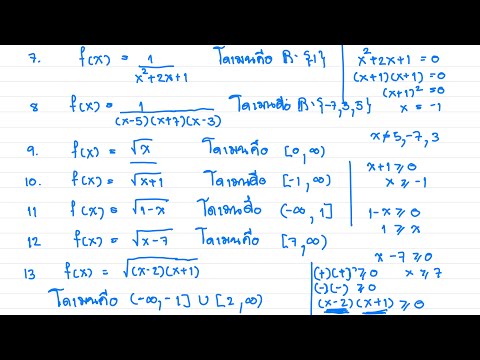 7. f(x) = 1/(x²+2x+1) โดเมนคือ R-{1} x²+2x+1 = 0
(x+1)(x+1) = 0
(x+1)² = 0
x = -1
8 f(x) = 1/((x-5)(x+7)(x-3)) โดเมนคือ R-{-7,3,5}
x≠5,-7,3
9. f(x) = √x โดเมนคือ [0,∞)
10. f(x) = √(x+1) โดเมนคือ [-1,∞) x+1 ≥ 0
x ≥ -1
11 f(x) = √(1-x) โดเมนคือ (-∞,1] 1-x ≥ 0
1 ≥ x
12 f(x) = √(x-7) โดเมนคือ [7,∞) x-7 ≥ 0
x ≥ 7
13 f(x) = √((x-2)(x+1)) (+)(+) ≥ 0
(-)(-) ≥ 0
โดเมนคือ (-∞,-1] ∪ [2,∞) (x-2)(x+1) ≥ 0